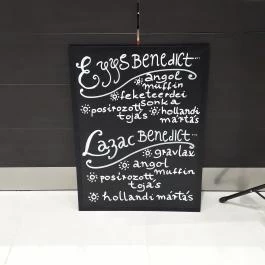 EggS BENEDICT...
angol
muffin
feketeerdei
sonka
posírozott
tojás
hollandi
mártás
Lazac BENEDICT...
gravlax
angol
muffin
posírozott
tojás
hollandi mártás